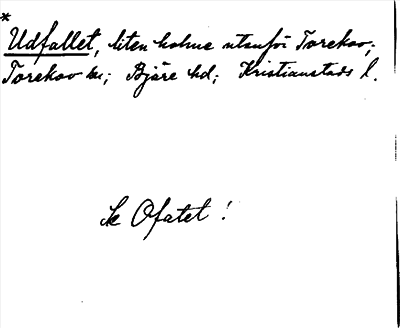 *
Udfallet, liten holme utanför Torekov;
Torekov sn; Bjäre hd; Kristianstads l.
Se Ofatet!